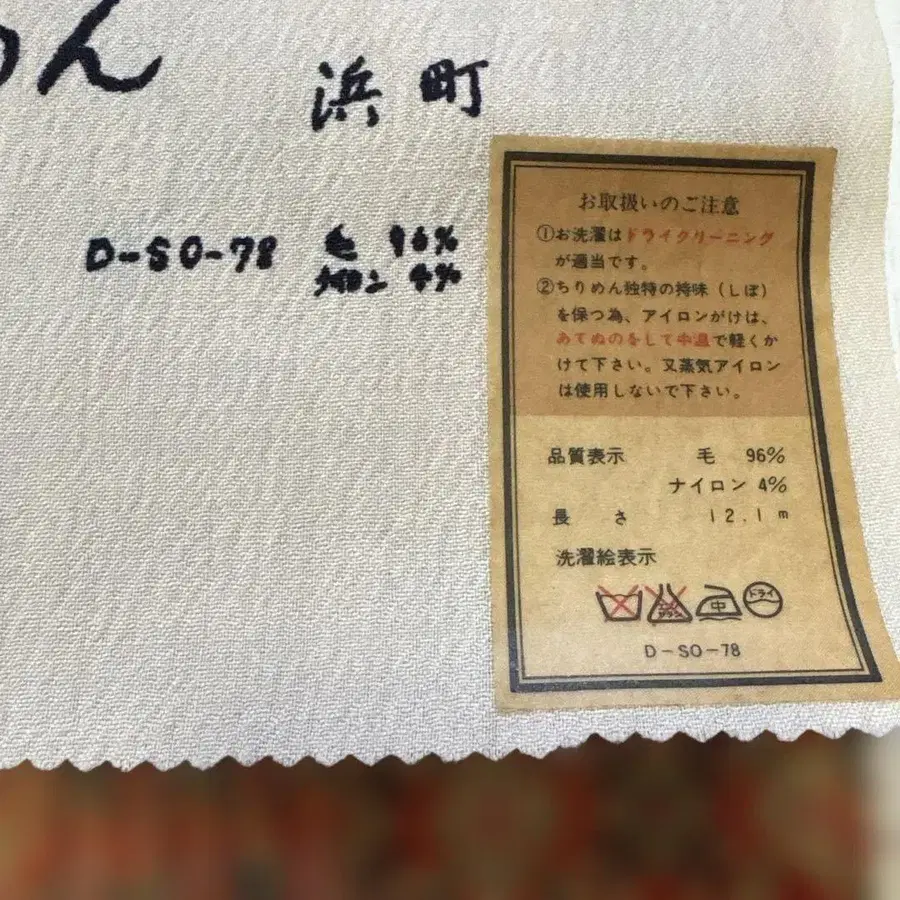 めん
浜町
D-SO-78 毛 96%
ナイロン 4%
お取扱いのご注意
①お洗濯はドライクリーニング
が適当です。
②ちりめん独特の特味(しぼ)
を保つ為、アイロンがけは、
あてぬのをして中温で軽くか
けて下さい。又蒸気アイロン
は使用しないで下さい。
品質表示 毛 96%
ナイロン 4%
長さ 12.1m
洗濯絵表示
中 ドライ
D-SO-78